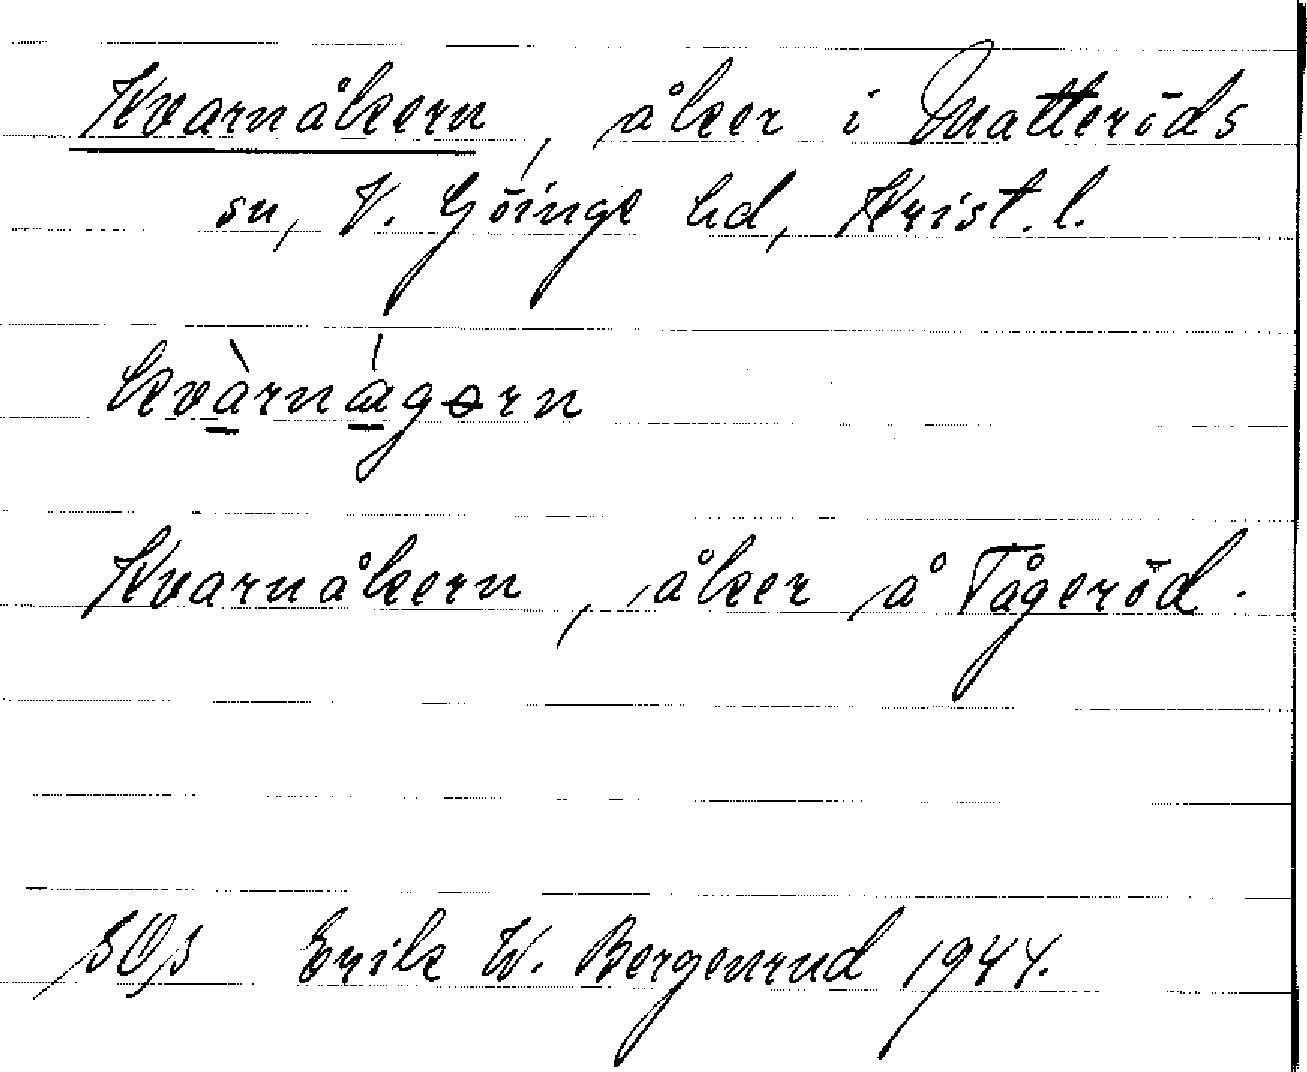 Kvarnåkern, åker i Matteröds
sn, V. Göinge hd, Krist. l.
kvàrnágərn
Kvarnåkern, åker å Tågeröd.
Erik W. Bergenrud 1944.